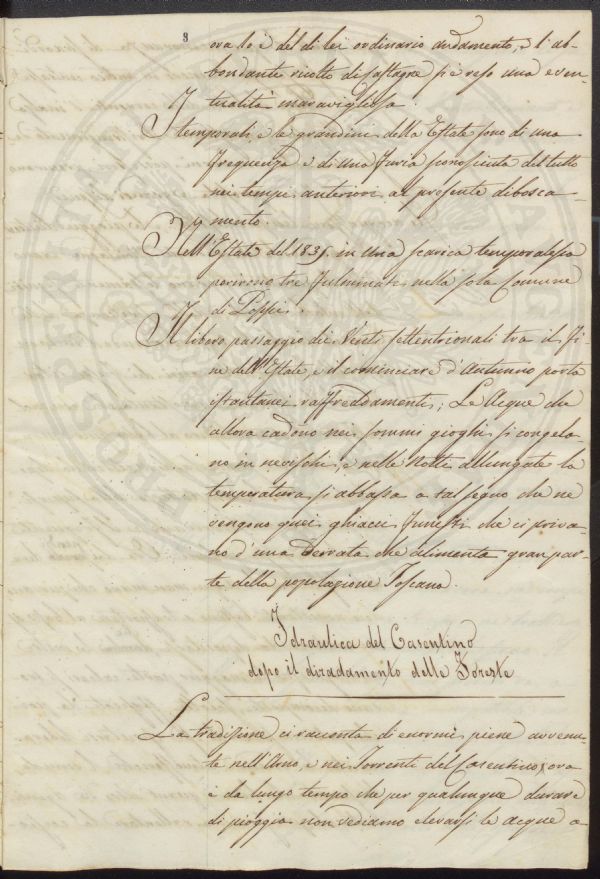 8
ora lo è del di lei ordinario andamento, e l'ab-
bondante ricolto di Castagne si è reso una even-
tualità maravigliosa.
I temporali, e le grandini della Estate sono di una
frequenza e di una furia sconosciuta del tutto
nei tempi anteriori al presente disbosca-
mento.
Nell'Estate del 1835. in una scarica temporalesca
perirono tre fulminati nella sola Comune
di Poppi.
Il libero passaggio dei Venti settentrionali tra il fi-
ne dell'Estate, e il cominciare d'Autunno porta
istantanei raffreddamenti; Le Acque che
allora cadono nei sommi gioghi si congela-
no in nevischi, e nelle Notti allungate la
temperatura si abbassa a tal segno che ne
vengono quei ghiacci funesti che ci priva-
no d'una derrata che alimenta gran par-
te della popolazione Toscana.
Idraulica del Casentino
dopo il diradamento delle Foreste
La tradizione ci racconta di enormi piene avvenu-
te nell'Arno, e nei Torrenti del Casentino, ora
è da lungo tempo che per qualunque durare
di pioggia non vediamo elevarsi le acque a